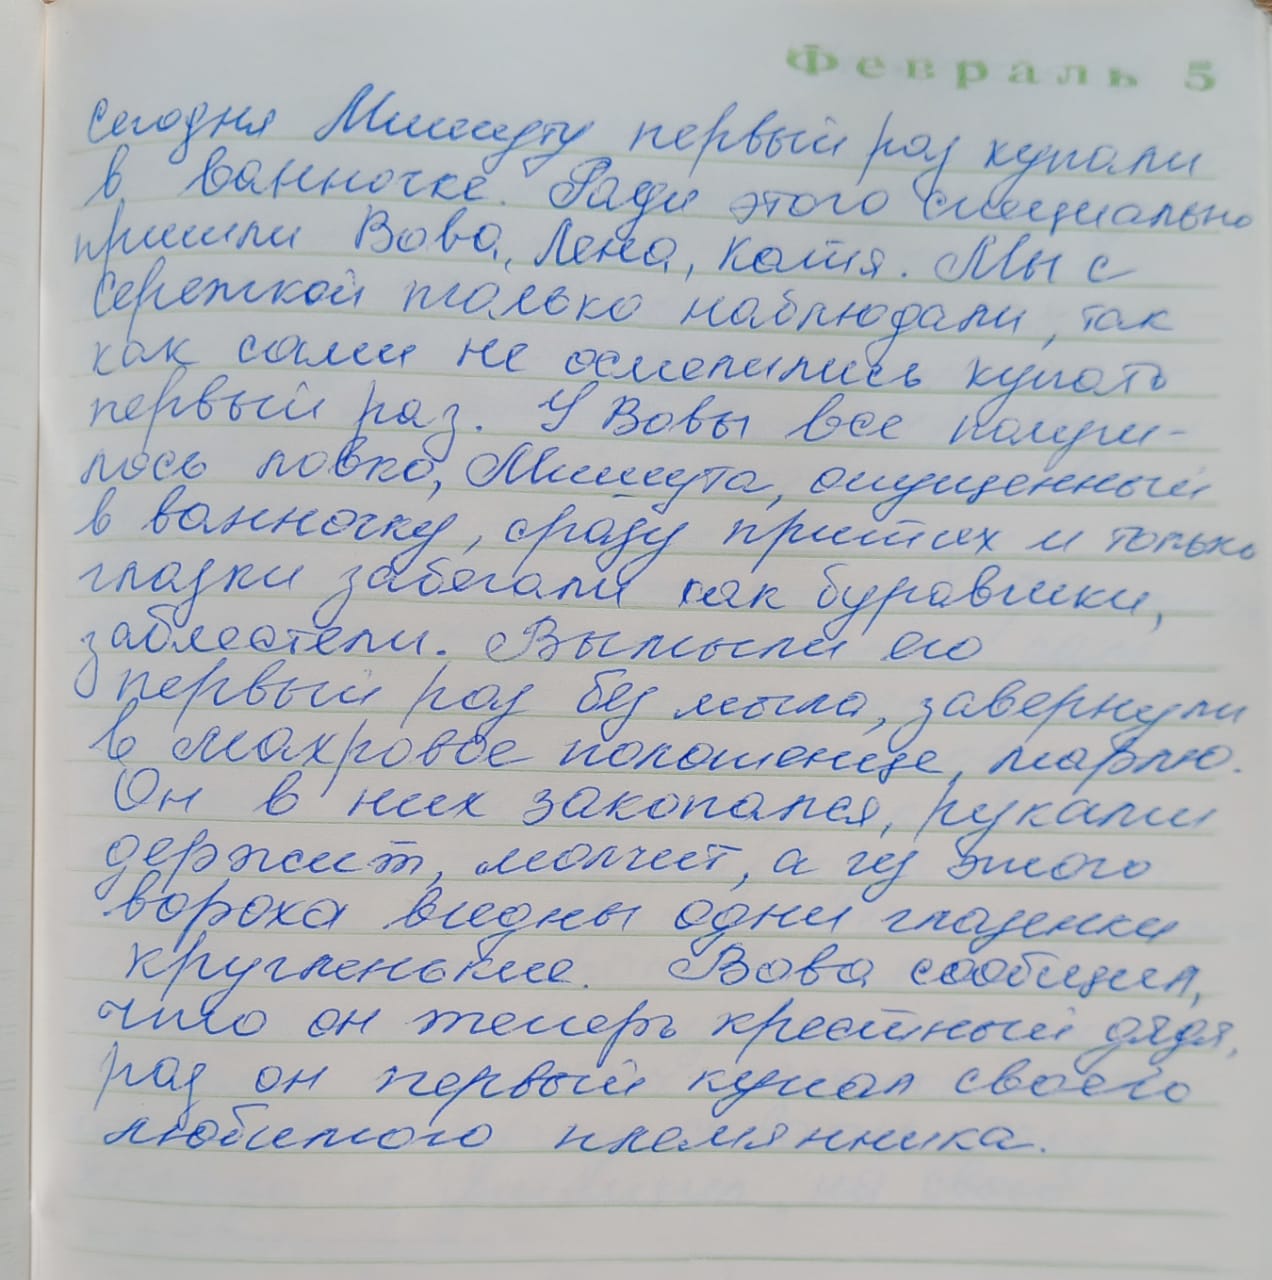 Февраль 5
Сегодня Мишуту первый раз купали
в ванночке. Ради этого специально
пришли Вова, Лена, Катя. Мы с
Сережкой только наблюдали, так
как сами не осмелились купать
первый раз. У Вовы все получи-
лось ловко, Мишута, опущенный
в ванночку, сразу притих и только
глазки забегали как буравчики,
заблестели. Вымыли его
первый раз без мыла, завернули
в махровое полотенце, марлю.
Он в них закопался, руками
держит, молчит, а из этого
вороха видны одни глазенки
кругленькие. Вова сообщил,
что он теперь крестный дядя,
раз он первый купал своего
любимого племянника.